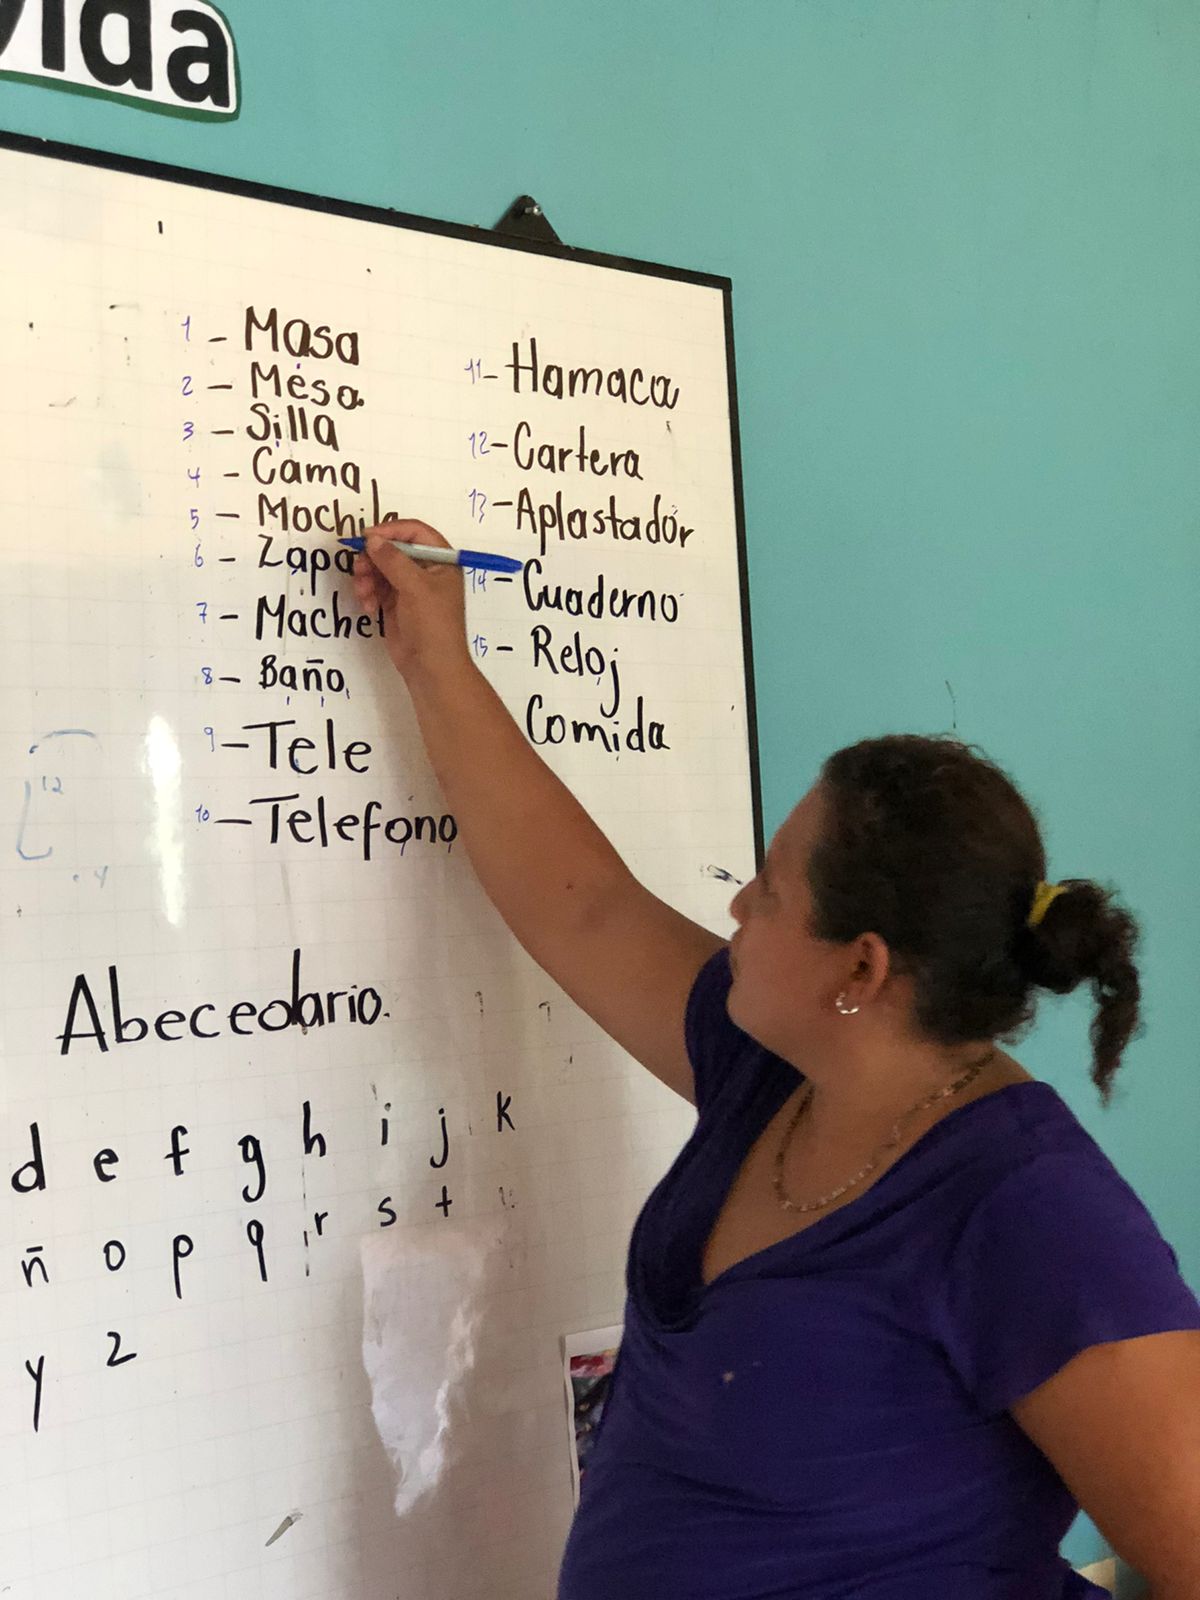 vida
1 - Masa
2 - Mesa
3 - Silla
4 - Cama
5 - Mochila
6 - Zapa
7 - Machet
8 - Baño
9 - Tele
10 - Telefono
11 - Hamaca
12 - Cartera
13 - Aplastador
14 - Cuaderno
15 - Reloj
Comida
12
Abecedario.
d e f g h i j k
ñ o p q r s t
y z